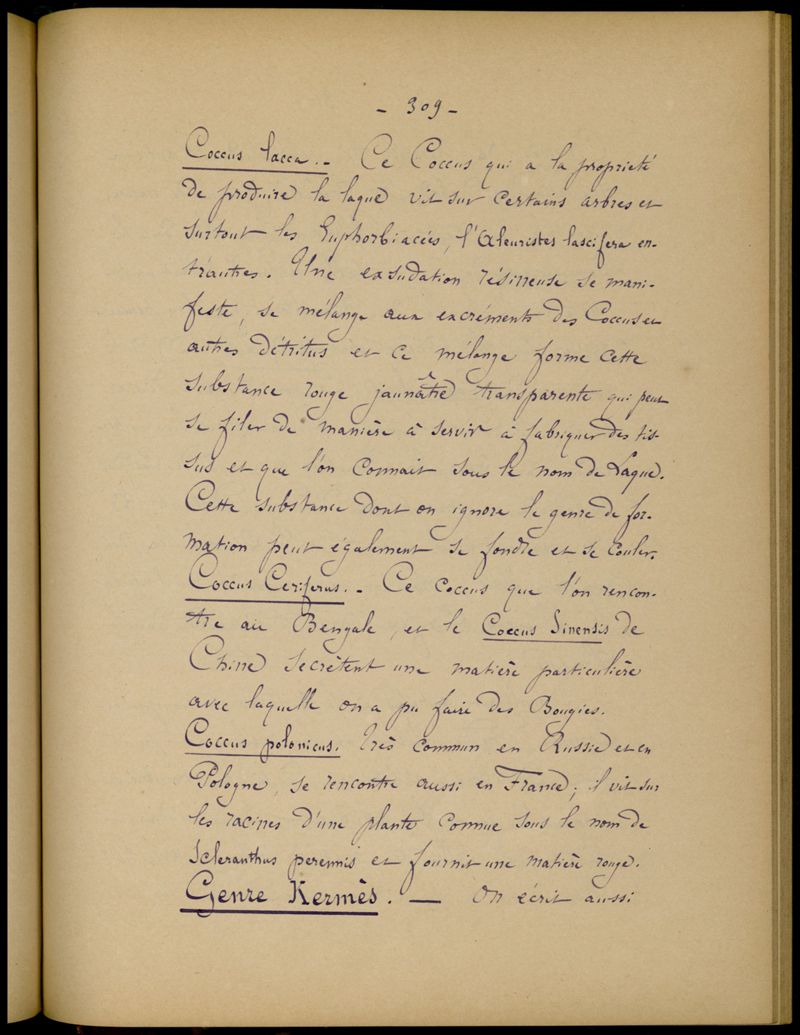 - 309 -
Coccus lacca. - Ce Coccus qui a la proprieté
de produire la laque vit sur certains arbres et
surtout les Euphorbiacées, l'Aleuristes lascifera en-
tr'autres. Une exsudation résineuse se mani-
feste, se mélange aux excréments des Coccus et
autres détritus et ce mélange forme cette
substance rouge jaunâtre transparente qui peut
se filer de manière à servir à fabriquer des tis-
sus et que l'on connait sous le nom de Laque.
Cette substance dont on ignore le genre de for-
mation peut également se fondre et se couler.
Coccus Ceriferus. - Ce coccus que l'on rencon-
tre au Bengale, et le Coccus Sinensis de
Chine secrètent une matière particulière
avec laquelle on a pu faire des Bougies.
Coccus polonicus. Très commun en Russie et en
Pologne, se rencontre aussi en France; il vit sur
les racines d'une plante connue sous le nom de
Scleranthus perennis et fournit une matière rouge.
Genre Kermès. — On écrit aussi